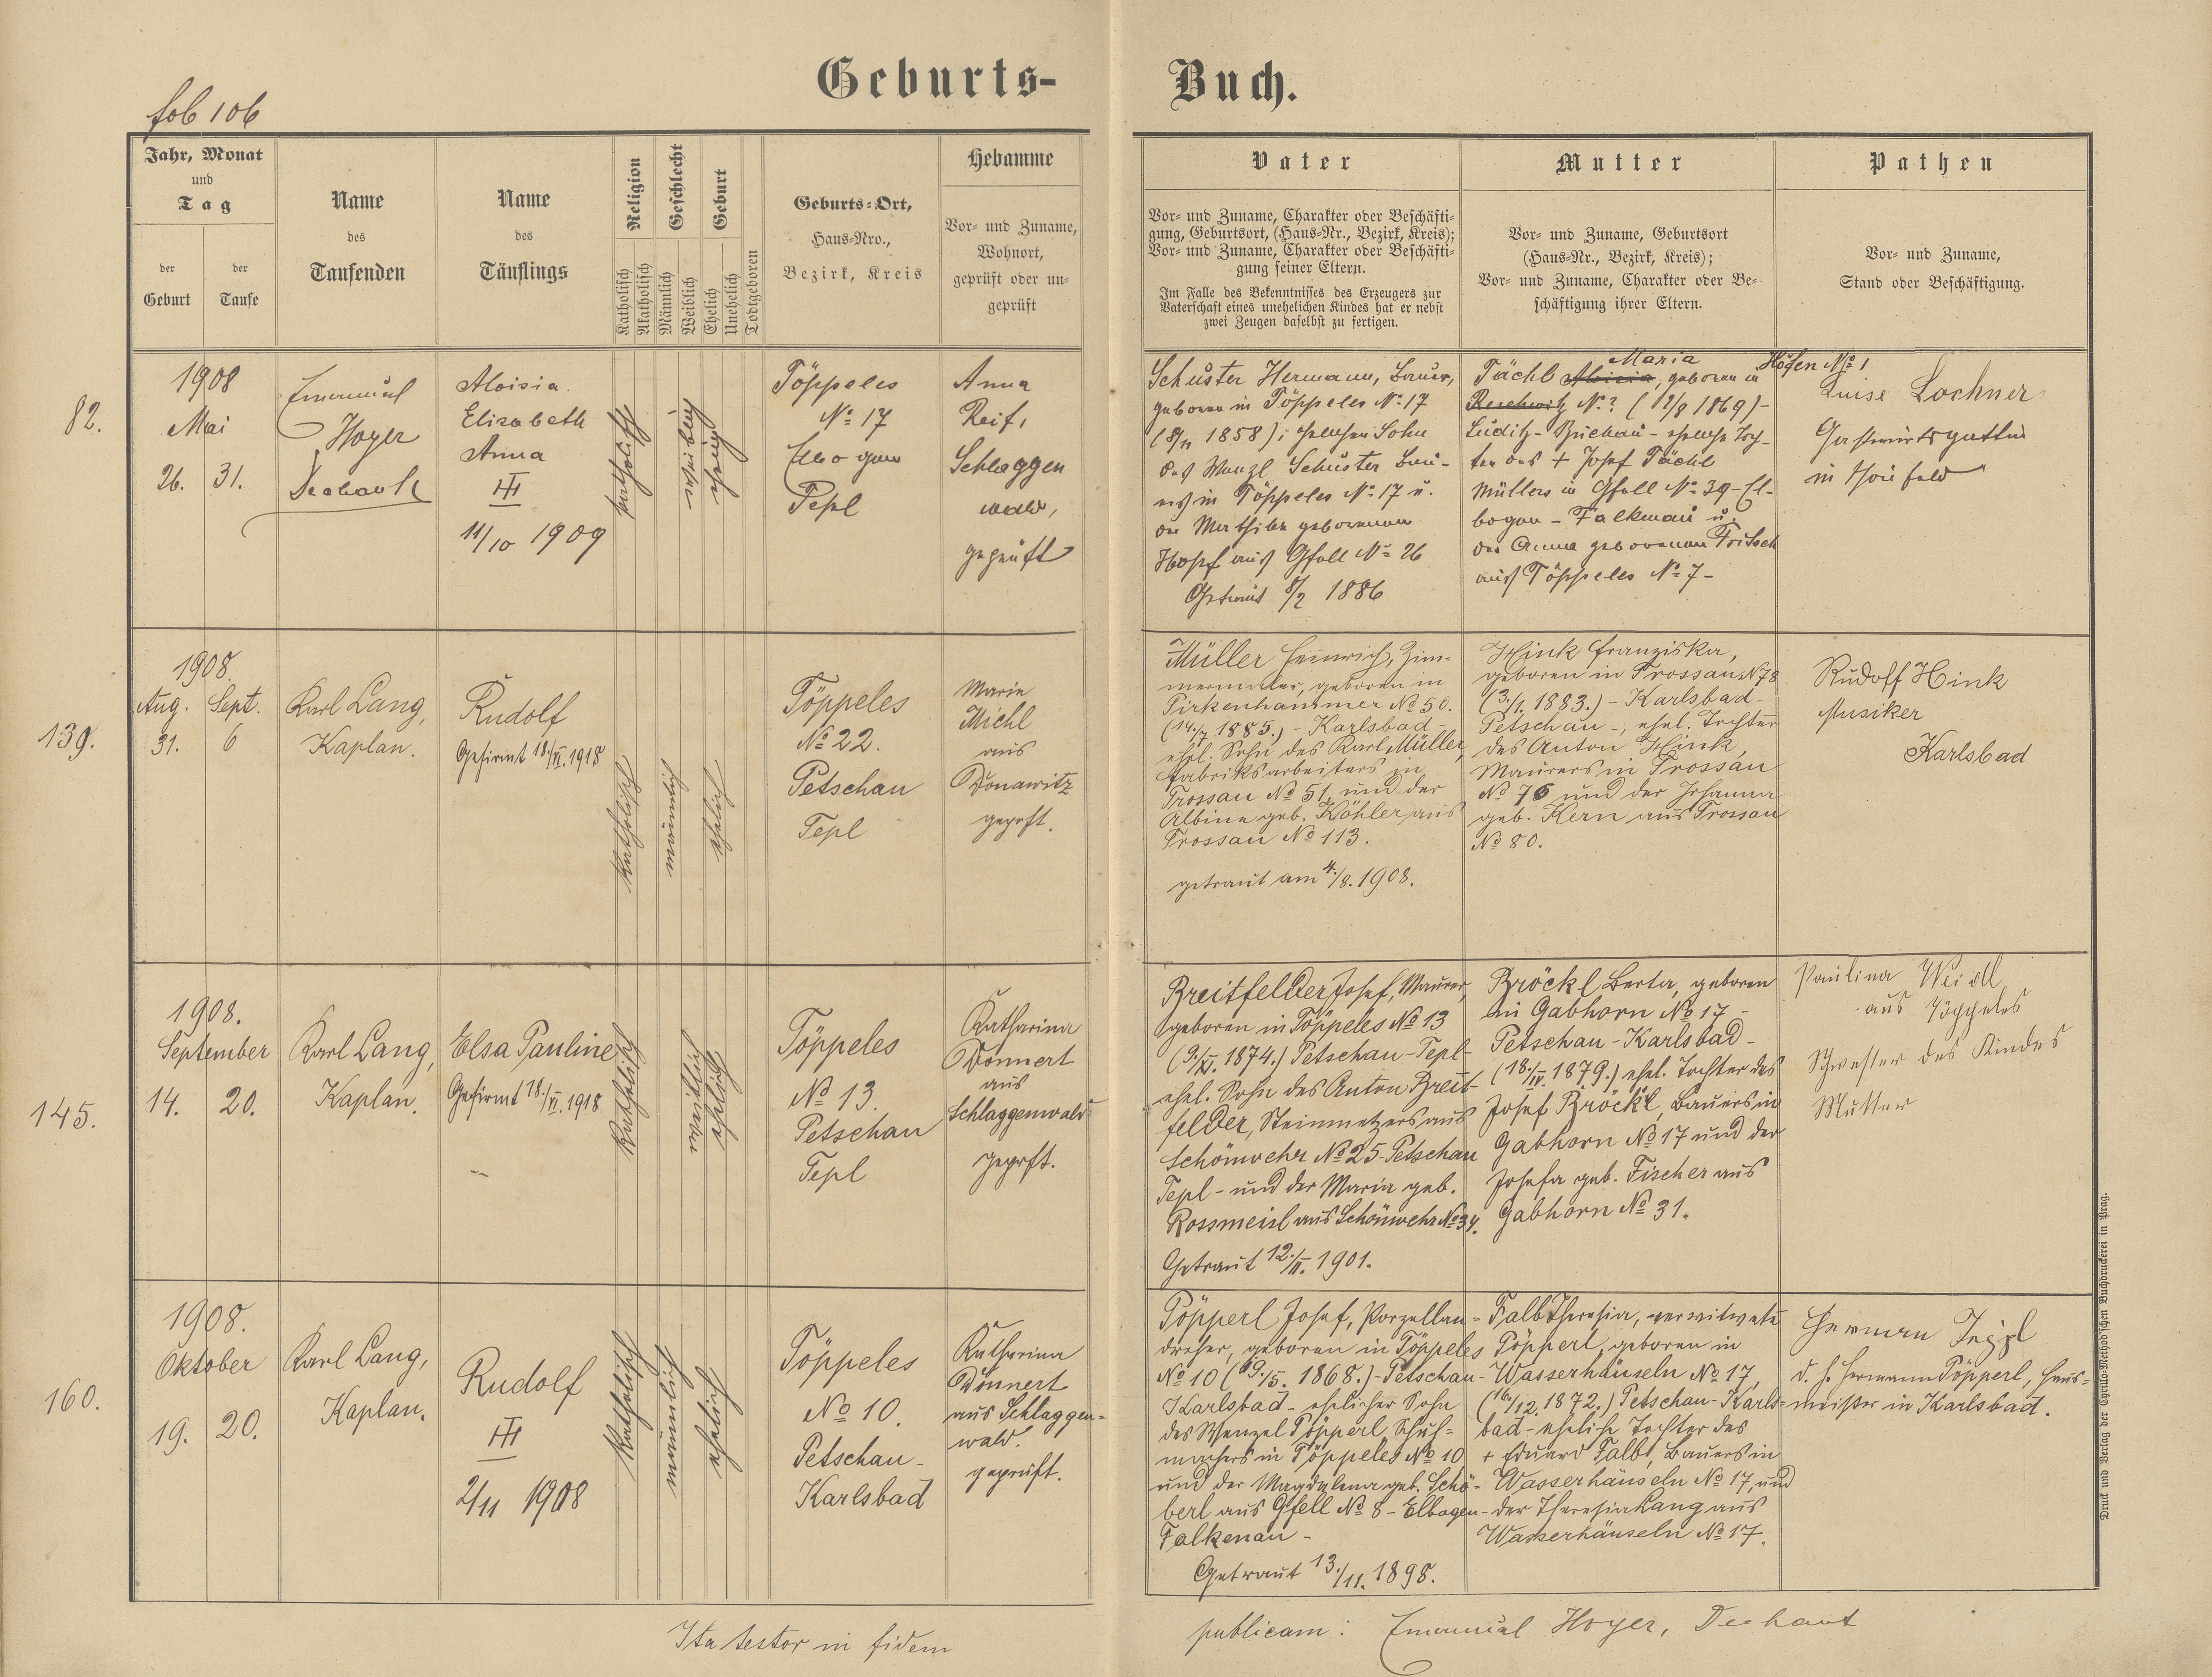 Geburts-
Buch.
fol 106
Jahr, Monat
und
Tag
der
Geburt
der
Taufe
Name
des
Taufenden
Name
des
Täuflings
Religion
Katholisch
Akatholisch
Geschlecht
Männlich
Weiblich
Geburt
Ehelich
Unehelich
Todtgeboren
Geburts-Ort,
Haus-Nro.,
Bezirk, Kreis
Hebamme
Vor- und Zuname,
Wohnort,
geprüft oder un-
geprüft
Vater
Vor- und Zuname, Charakter oder Beschäfti-
gung, Geburtsort, (Haus-Nr., Bezirk, Kreis);
Vor- und Zuname, Charakter oder Beschäfti-
gung seiner Eltern.
Im Falle des Bekenntnisses des Erzeugers zur
Vaterschaft eines unehelichen Kindes hat er nebst
zwei Zeugen daselbst zu fertigen.
Mutter
Vor- und Zuname, Geburtsort
(Haus-Nr., Bezirk, Kreis);
Vor- und Zuname, Charakter oder Be-
schäftigung ihrer Eltern.
Pathen
Vor- und Zuname,
Stand oder Beschäftigung.
82.
1908
Mai
26. 31.
Emanuel
Hoyer
Dechant
Aloisia
Elisabeth
Anna
III
11/10 1909
katholisch
weiblich
ehelich
Töppeles
№ 17
Elbogen
Tepl
Anna
Reif,
Schlaggen
wald,
geprüft
Schuster Hermann, Bauer,
geboren in Töppeles № 17
(8/11 1858); ehelicher Sohn
des Wenzl Schuster Bau-
ers in Töppeles № 17 u.
der Mathilde geborenen
Hopf aus Gfell № 26
Getraut 8/2 1886
Maria
Tächl Aloisia, geboren in Höfen № 1
Reschwitz №? (12/8 1869)-
Luditz-Buchau - eheliche Toch-
ter des + Josef Tächl
Müllers in Gfell № 39-El-
bogen - Falkenau u.
der Anna geborenen Fritsch
aus Töppeles № 7-
Luise Lochner
Gastwirtsgattin
in
139.
1908.
Aug. Sept.
31. 6
Karl Lang,
Kaplan.
Rudolf
Gefirmt 18./VI. 1918
katholisch
männlich
ehelich
Töppeles
№ 22.
Petschau
Tepl
Marie
Michl
aus
Donawitz
geprft.
Müller Heinrich, Zim-
mermaler, geboren in
Pirkenhammer № 50.
(14./7. 1885.) - Karlsbad -
ehel. Sohn des Karl Müller,
Fabriksarbeiters in
Trossau № 51, und der
Albine geb. Köhler aus
Trossau № 113.
getraut am 4./8. 1908.
Hink Franziska,
geboren in Trossau № 78
(3./1. 1883.) - Karlsbad -
Petschau -, ehel. Tochter
des Anton Hink,
Maurers in Trossau
№ 76 und der Johanna
geb. Kern aus Trossau
№ 80.
Rudolf Hink
Musiker
Karlsbad
145.
1908.
September
14. 20.
Karl Lang,
Kaplan.
Elsa Pauline
Gefirmt 18./VI. 1918
katholisch
weiblich
ehelich
Töppeles
№ 13.
Petschau
Tepl
Katharina
Donnert
aus
Schlaggenwald
geprft.
Breitfelder Josef, Maurer,
geboren in Töppeles № 13
(9./XI. 1874.) Petschau-Tepl-
ehel. Sohn des Anton Breit-
felder, Steinmetzers aus
Schönwehr № 25-Petschau
Tepl - und der Maria geb.
Rossmeisl aus Schönwehr № 34.
Getraut 12./II. 1901.
Bröckl Berta, geboren
in Gabhorn № 17 -
Petschau - Karlsbad -
(18./IV. 1879.) ehel. Tochter des
Josef Bröckl, Bauers in
Gabhorn № 17 und der
Josefa geb. Fischer aus
Gabhorn № 31.
Paulina Weidl
aus Töppeles
Schwester des Kindes
Mutter
160.
1908.
Oktober
19. 20.
Karl Lang,
Kaplan.
Rudolf
III
2/11 1908
katholisch
männlich
ehelich
Töppeles
№ 10.
Petschau -
Karlsbad
Katharina
Donnert
aus Schlaggen-
wald.
geprüft.
Pöpperl Josef, Porzellan-
dreher, geboren in Töppeles
№ 10 (19./5. 1868.)-Petschau-
Karlsbad - ehelicher Sohn
des Wenzel Pöpperl, Schuh-
machers in Töppeles № 10
und der Magdalena geb. Schö-
berl aus Gfell № 8 - Elbogen-
Falkenau -
Getraut 13./11. 1898.
Falb Theresia, verwitwete
Pöpperl, geboren in
Wasserhäuseln № 17,
(16./12. 1872.) Petschau-Karls-
bad - eheliche Tochter des
+ Eduard Falb, Bauers in
Wasserhäuseln № 17, und
der Theresia Lang aus
Wasserhäuseln № 17.
Herman
d. h. Hermann Pöpperl, Haus-
meister in Karlsbad.
Ita testor in fidem
publicam: Emanuel Hoyer, Dechant
Druck und Verlag der Cyrillo-Method'schen Buchdruckerei in Prag.